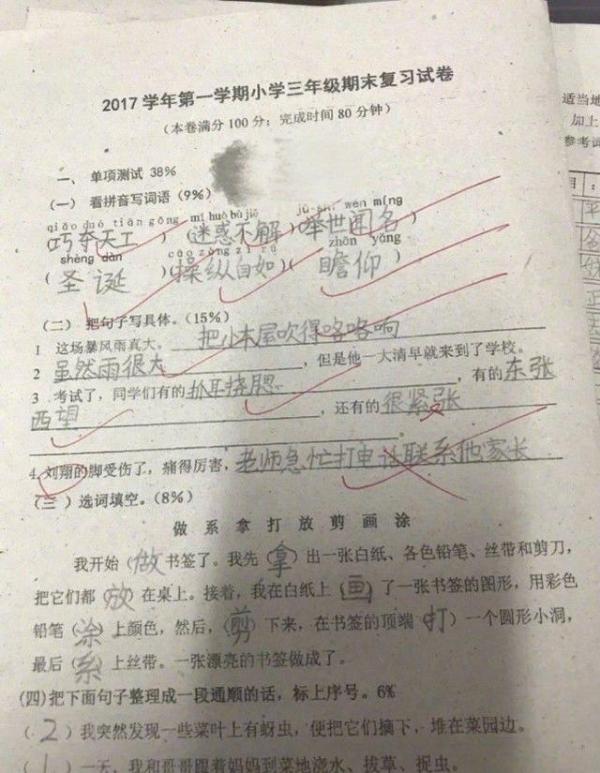 2017学年第一学期小学三年级期末复习试卷
（本卷满分100分；完成时间80分钟）
适当地
加上
参考词
一、 单项测试 38%
（一） 看拼音写词语（9%）
qiǎo duó tiān gōng mí huò bù jiě jǔ shì wén míng
巧夺天工 ）（迷惑不解）（举世闻名
shèng dàn cāo zòng zì rú zhān yǎng
（ 圣诞 （操纵自如）（ 瞻仰 ）
（二） 把句子写具体。（15%）
1 这场暴风雨真大。 把小木屋吹得咯咯响
2 虽然雨很大 ，但是他一大清早就来到了学校。
3．考试了，同学们有的 抓耳挠腮 ，有的 东张
西望 ，还有的 很紧张
4.刘翔的脚受伤了，痛得厉害，老师急忙打电话联系他家长
（三 ）选词填空。（8%）
做 系 拿 打 放 剪 画 涂
我开始（做）书签了。我先（拿）出一张白纸、各色铅笔、丝带和剪刀，
把它们都（放）在桌上。接着，我在白纸上（画）了一张书签的图形，用彩色
铅笔（涂）上颜色，然后，（剪）下来，在书签的顶端（打）一个圆形小洞，
最后（系）上丝带。一张漂亮的书签做成了。
（四）把下面句子整理成一段通顺的话，标上序号。6%
（2）我突然发现一些菜叶上有蚜虫，便把它们摘下，堆在菜园边。
（1）一天，我和哥哥跟着妈妈到菜地浇水、拔草、捉虫。